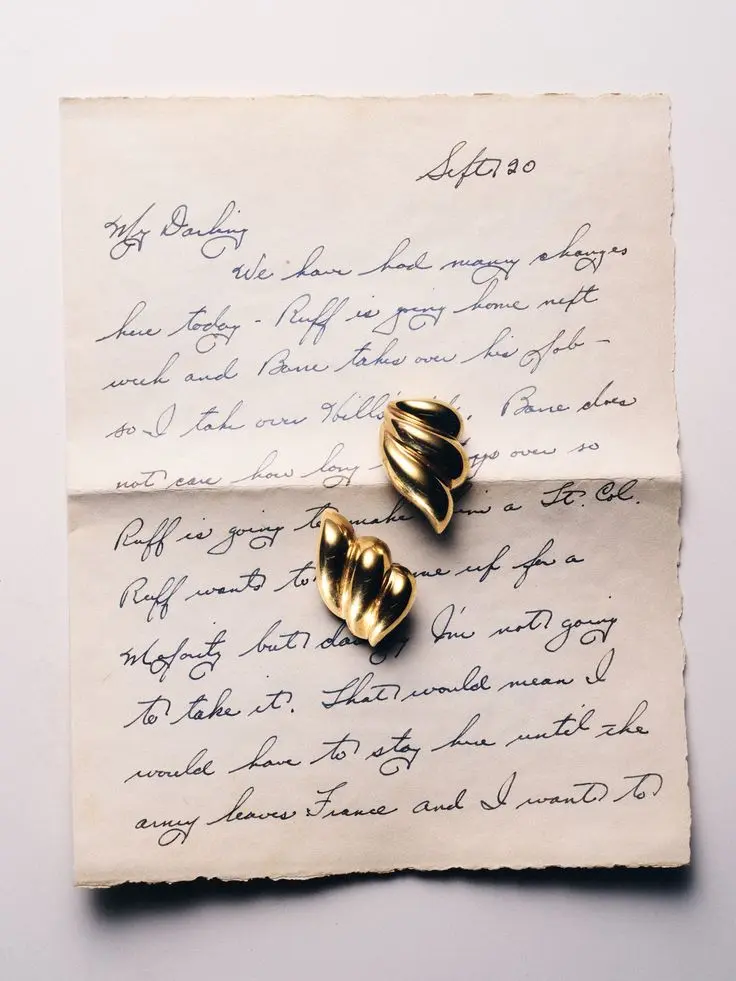 Sept 20
My Darling
We have had many changes
here today - Ruff is going home next
week and Bane takes over his job -
so I take over Hill's. Bane does
not care how long over so
Ruff is going to make him a Lt. Col.
Ruff wants to me up for a
Majority but I'm not going
to take it. That would mean I
would have to stay here until the
army leaves France and I want to